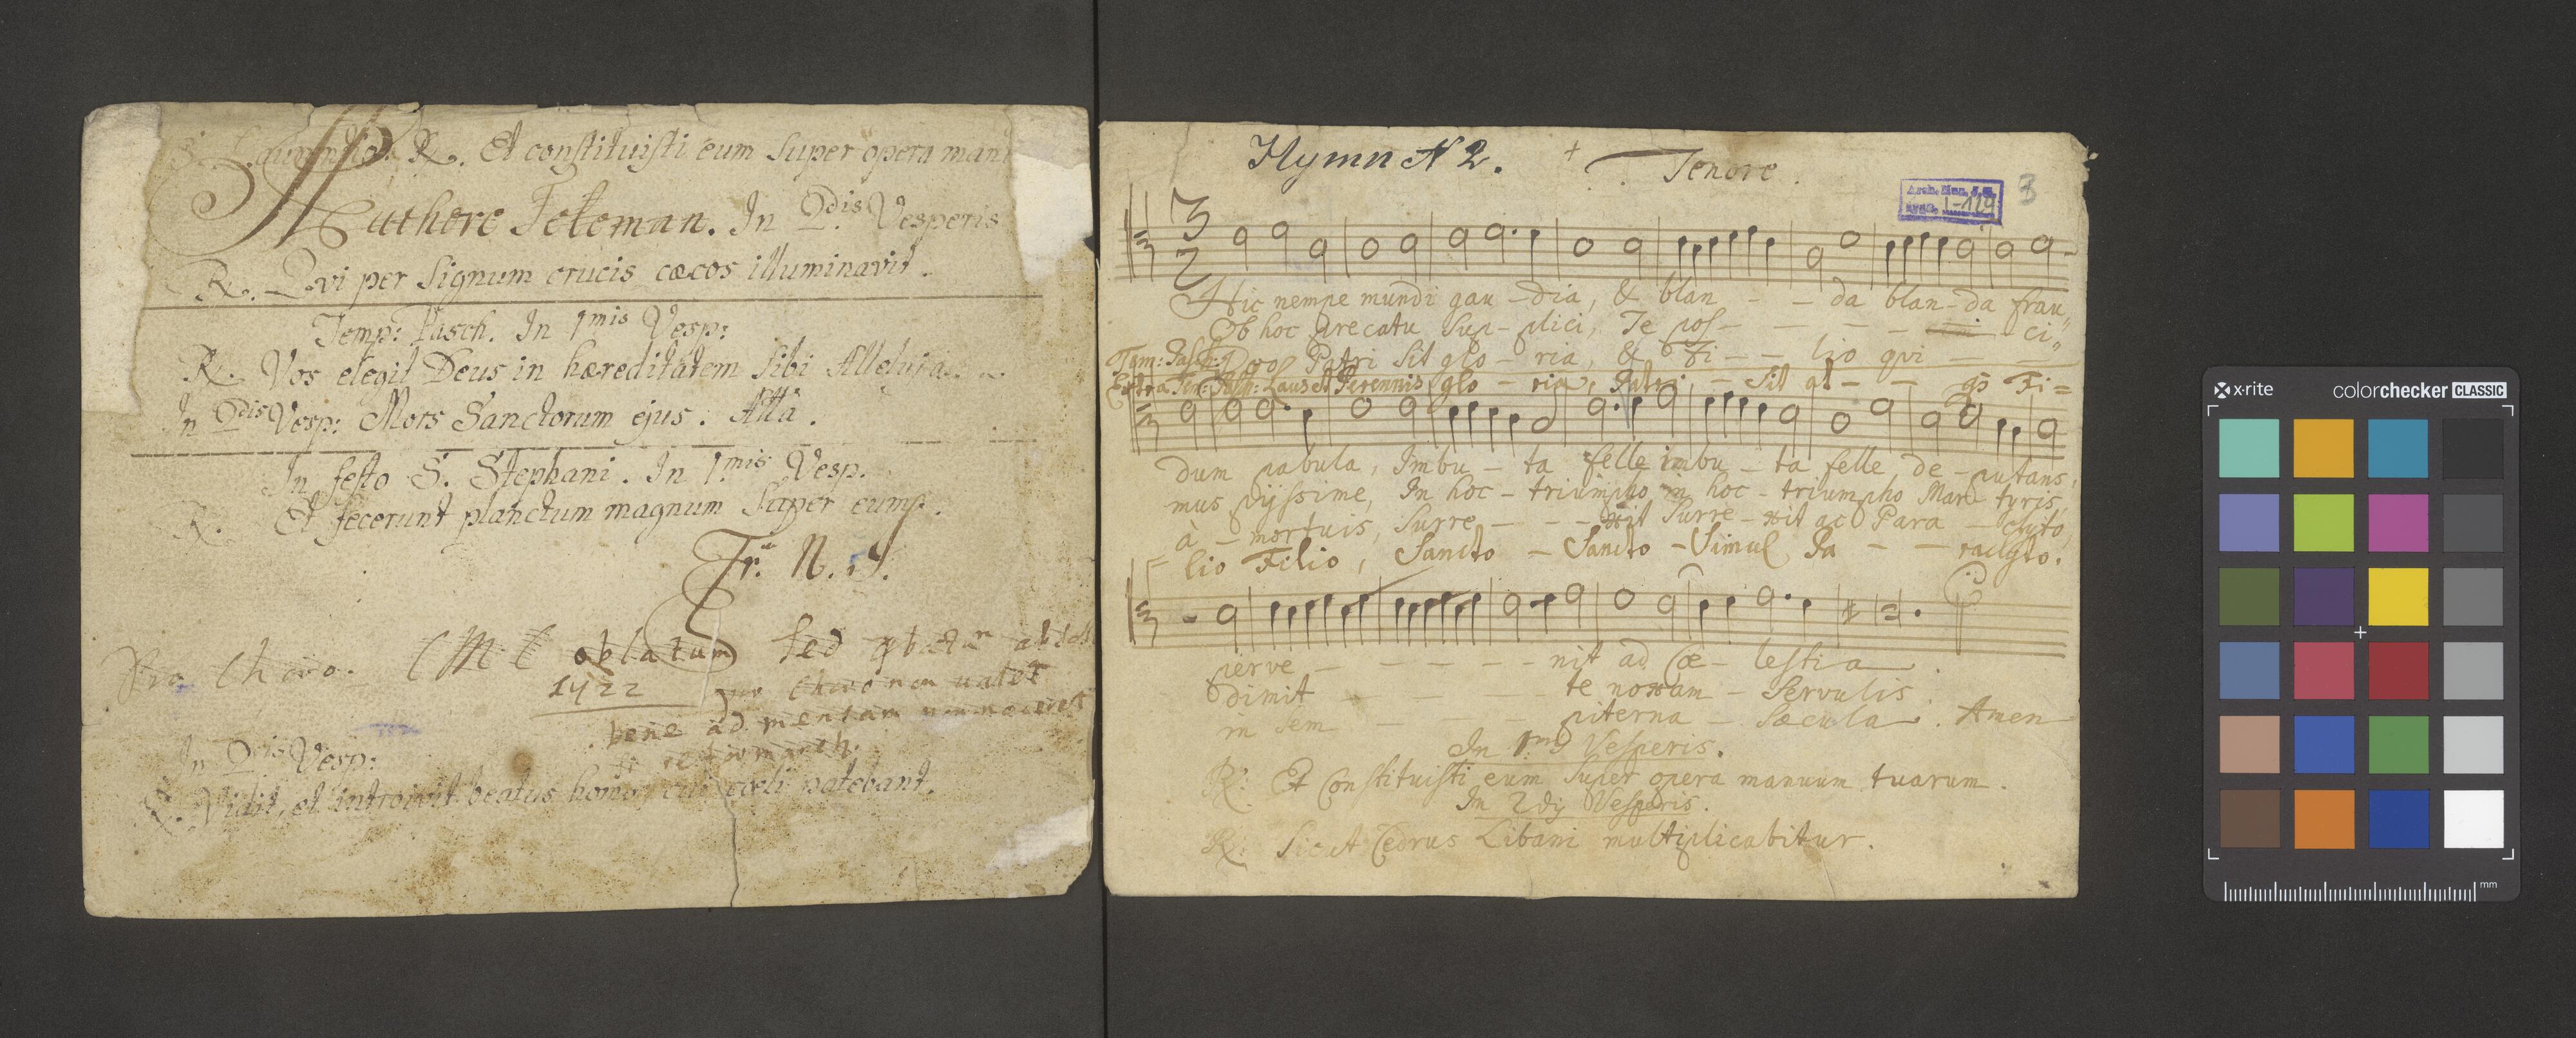 S. Laurentio. R. Et constituisti eum super opera man
Authore Teteman. In 2dis Vesperis
R. Qvi per signum crucis cæcos illuminavit.
Temp: Pasch. In 1mis Vesp:
R. Vos elegit Deus in hæreditatem sibi Alleluia
In 2dis Vesp: Mors Sanctorum ejus. Alla.
In festo S. Stephani. In 1mis Vesp.
R. Et fecerunt planctum magnum super eum.
Fr. N. S.
Pro Choro. C M C oblatum sed
1722 pro choro non valet
bene ad mentam
In 2dis Vesp:
R. Vidit, et introivit beatus homo, cui cœli patebant.
Hymn N 2. + Tenore.
3
3
2
Hic nempe mundi gau - dia, & blan - - da blan - da frau
Ob hoc precatu sup - plici, Te pos - - - - ci
Tem: Pasch: Deo Patri sit glo - ria, & Fi - - lio qvi -
Extra Tem: Pasch: Laus et Perennis glo - ria, Patri - sit at - - qs Fi =
dum pabula, Imbu - ta felle imbu - ta felle de - putans,
mus pijssime, In hoc - triumpho in hoc - triumpho Mar tyris,
à - mortuis, surre - - - xit surre - xit ac Para - clyto,
lio Filio, Sancto - Sancto - Simul Pa - - raclyto.
perve - - - - - nit ad Cœ - lestia.
dimit - - - te noxam - servulis.
in sem - - piterna - sæcula. Amen
In 1mis Vesperis.
R: Et Constituisti eum super opera manuum tuarum.
In 2dis Vesperis.
R: Sicut Cedrus Libani multiplicabitur.
x-rite colorchecker CLASSIC
mm